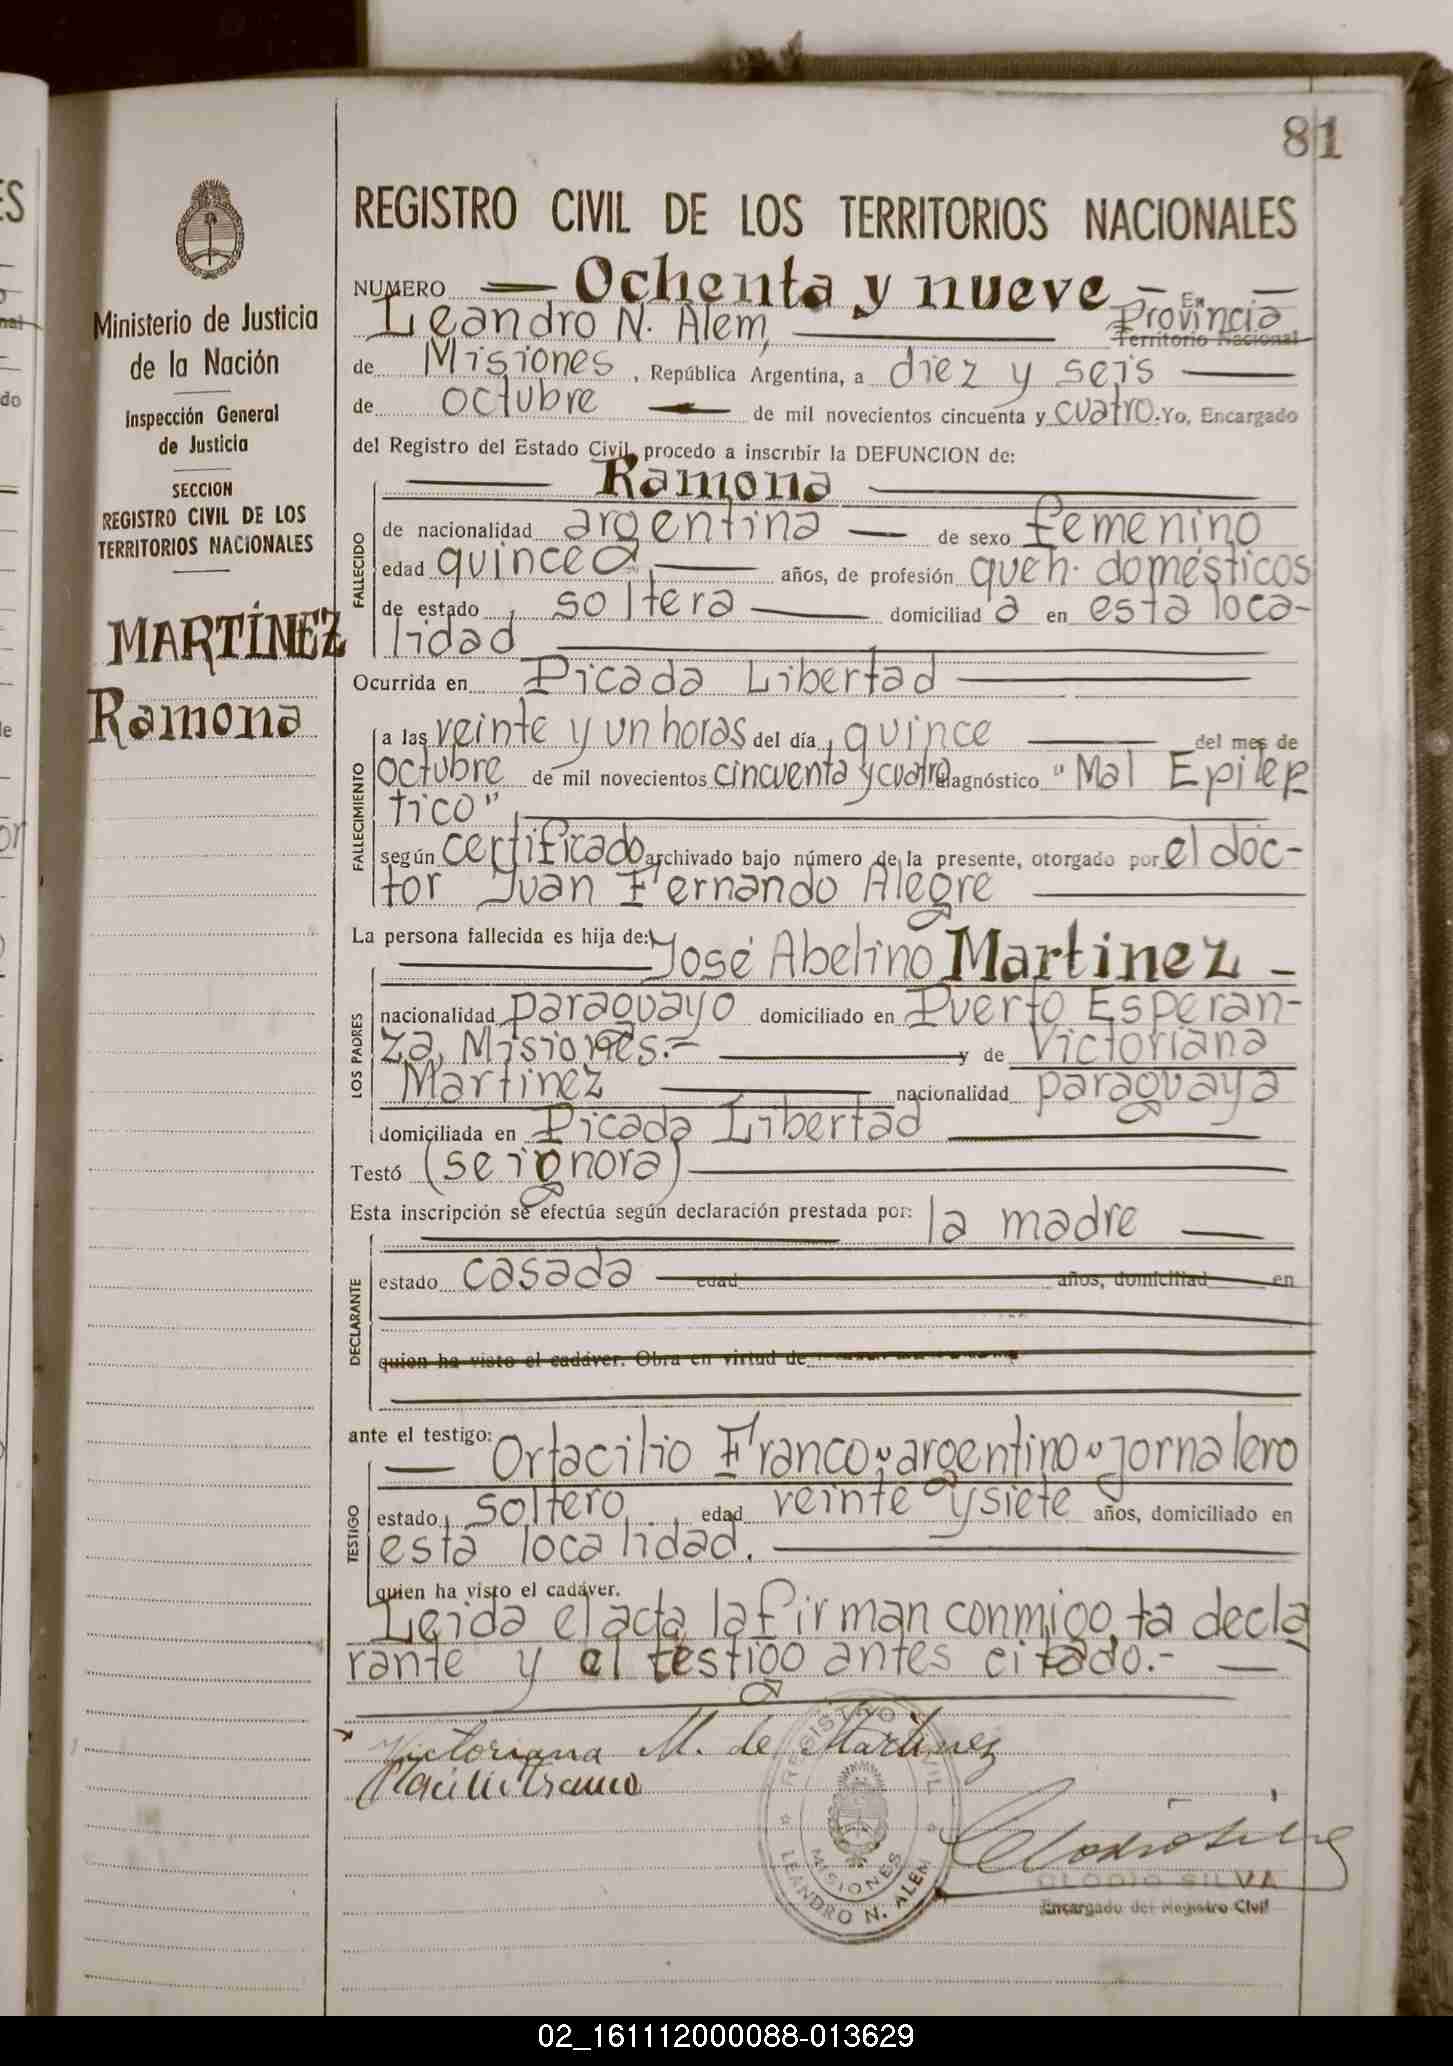 81
REGISTRO CIVIL DE LOS TERRITORIOS NACIONALES
NUMERO Ochenta y nueve
Leandro N. Alem, En Provincia
Territorio Nacional
de Misiones, República Argentina, a diez y seis
de octubre de mil novecientos cincuenta y cuatro. Yo, Encargado
del Registro del Estado Civil, procedo a inscribir la DEFUNCION de:
Ramona
FALLECIDO
de nacionalidad argentina de sexo femenino
edad quince años, de profesión queh. domésticos
de estado soltera domiciliad a en esta loca-
lidad
Ocurrida en Picada Libertad
FALLECIMIENTO
a las veinte y un horas del día quince del mes de
octubre de mil novecientos cincuenta y cuatro diagnóstico "Mal Epilep
tico"
según certificado archivado bajo número de la presente, otorgado por el doc-
tor Juan Fernando Alegre
La persona fallecida es hija de:
José Abelino Martinez
LOS PADRES
nacionalidad paraguayo domiciliado en Puerto Esperan-
za, Misiones.- y de Victoriana
Martinez nacionalidad paraguaya
domiciliada en Picada Libertad
Testó (se ignora)
Esta inscripción se efectúa según declaración prestada por: la madre
DECLARANTE
estado casada edad años, domiciliad en
quien ha visto el cadáver. Obra en virtud de
ante el testigo:
Ortacilio Franco argentino jornalero
TESTIGO
estado soltero edad veinte y siete años, domiciliado en
esta localidad.
quien ha visto el cadáver.
Leida el acta, la firman conmigo, la decla
rante y el testigo antes citado.-
Victoriana M. de Martinez
REGISTRO CIVIL
MISIONES
LEANDRO N. ALEM
CLODIO SILVA
Encargado del Registro Civil
Ministerio de Justicia
de la Nación
Inspección General
de Justicia
SECCION
REGISTRO CIVIL DE LOS
TERRITORIOS NACIONALES
MARTÍNEZ
Ramona
02_161112000088-013629